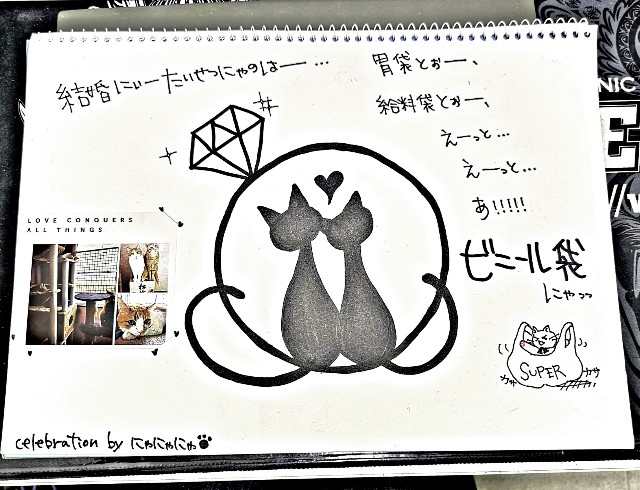 結婚にぃーたいせつにゃのはー…
胃袋とぉー、
給料袋とぉー、
えーっと…
えーっと…
あ!!!!!
ビニール袋
にゃっっ
LOVE CONQUERS
ALL THINGS
SUPER
カサ
カサ
celebration by にゃにゃにゃ
NIC
E